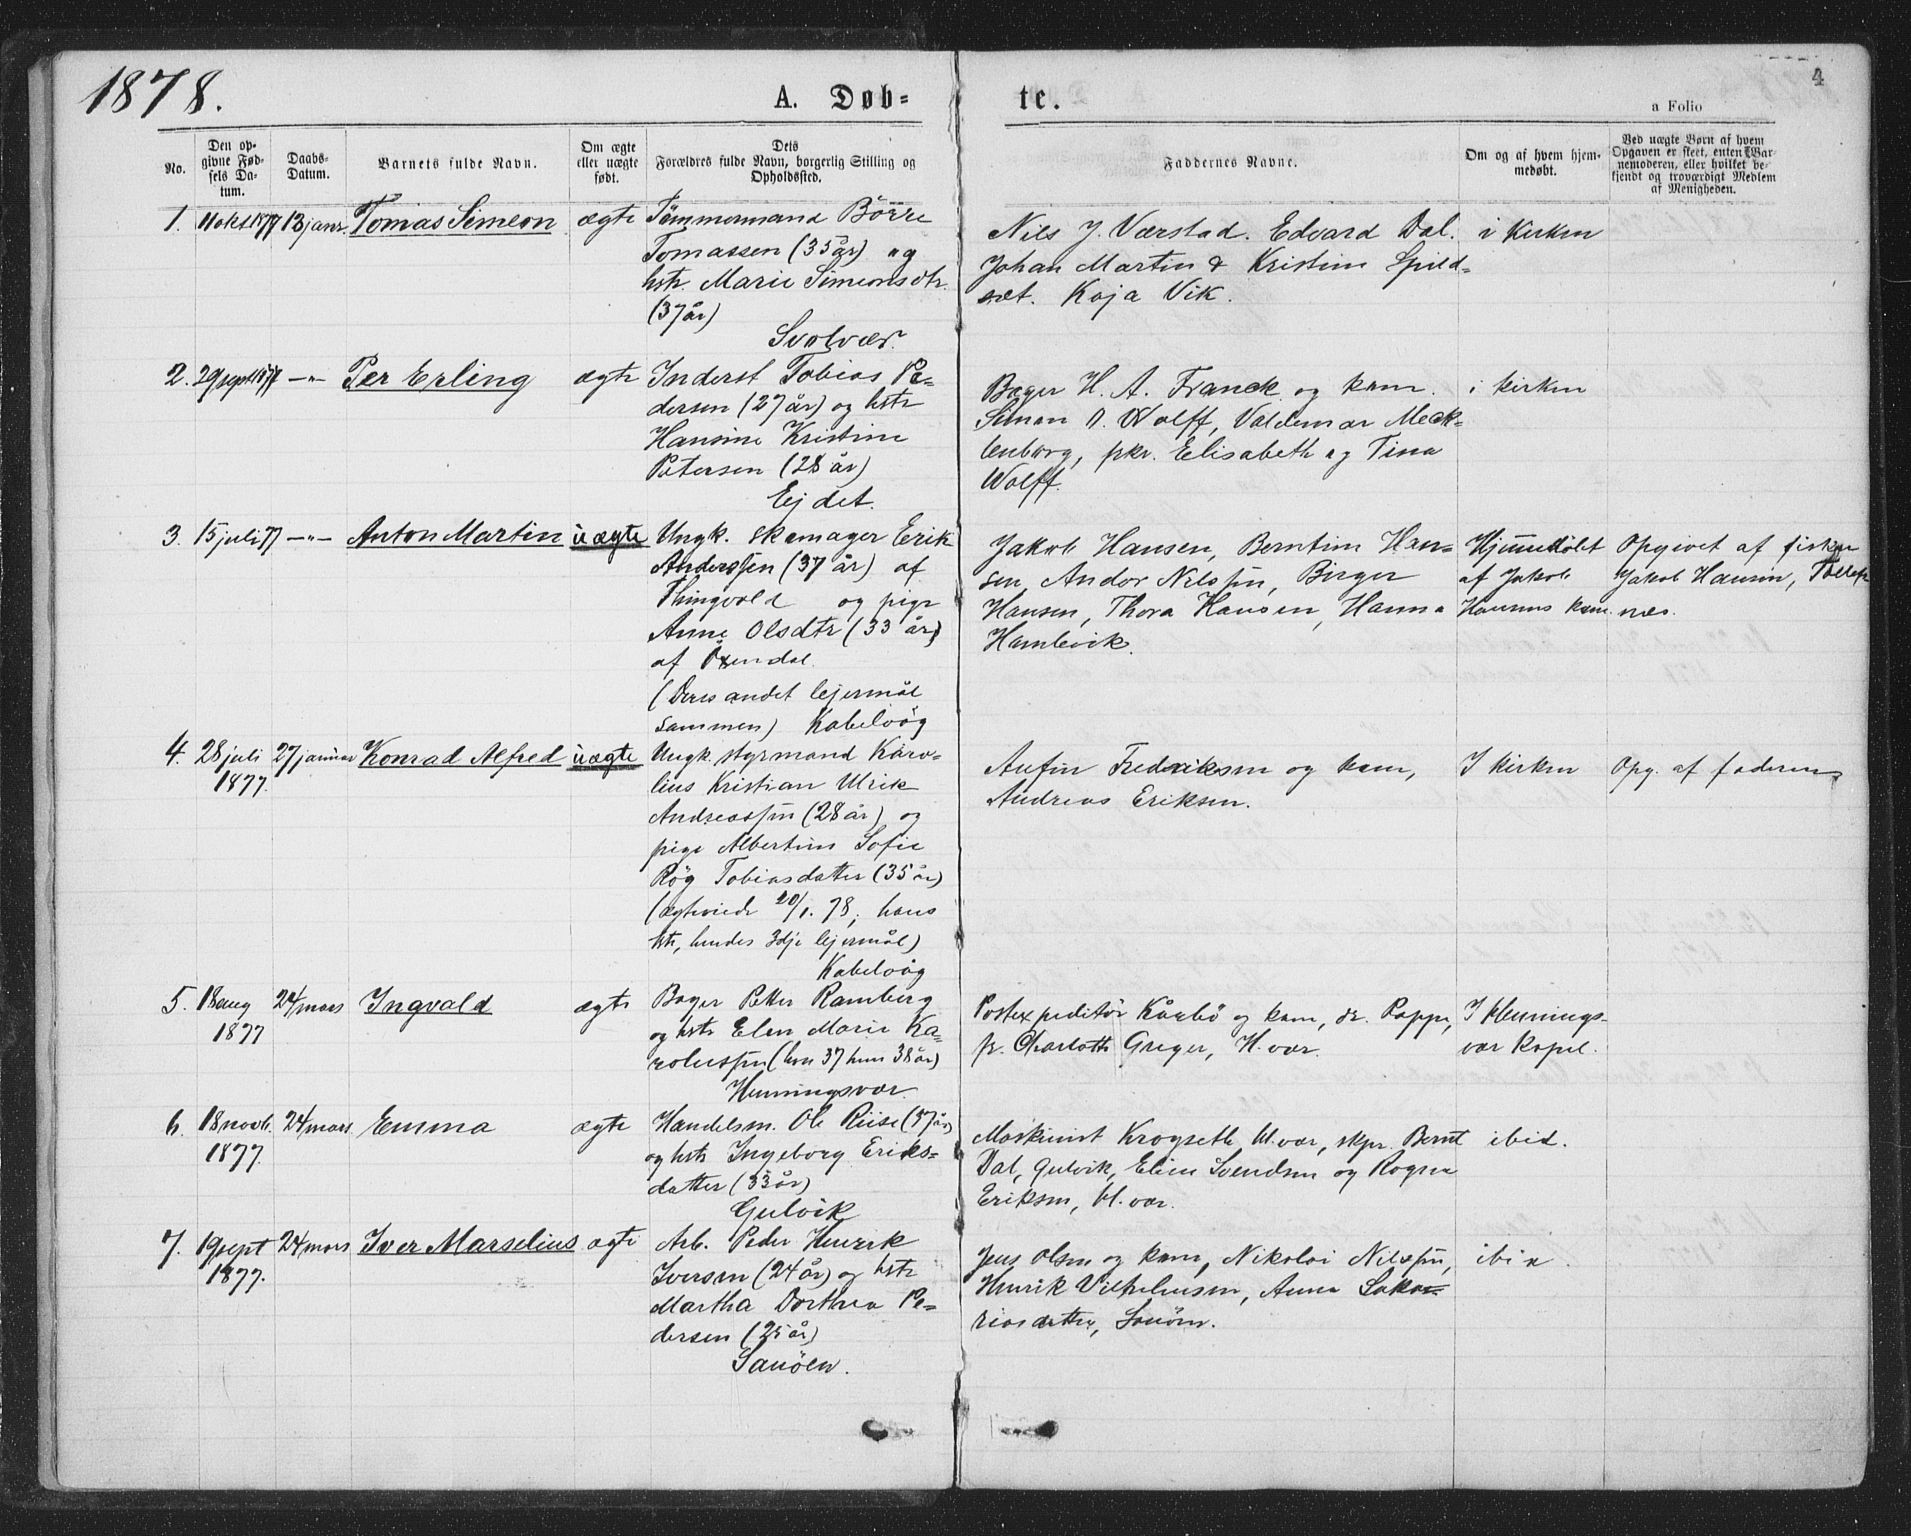 1878.
A. Døb-
te.
4
a Folio
No.
Den op-
givne Fød-
sels Da-
tum.
Daabs-
Datum.
Barnets fulde Navn.
Om ægte
eller uægte
født.
Dets
Forældres fulde Navn, borgerlig Stilling og
Opholdssted.
Faddernes Navne.
Om og af hvem hjem-
medøbt.
Ved uægte Børn af hvem
Opgaven er skeet, enten Bar-
nemoderen, eller hvilket be-
kjendt og troværdigt Medlem
af Menigheden.
1. 11 okt 1877 13 janr. Tomas Simeon ægte Tømmermand Börre
Tomassen (35 år) og
hstr. Marie Simeonsdtr.
(37 år)
Svolvær.
Nils J. Værstad. Edvard Dal.
Johan Martin & Kristine Spild-
sæt. Kaja Vik.
i kirken
2. 29 sept 1877 —„— Per Erling ægte Inderst Tobias Pe-
dersen (27 år) og hstr
Hansine Kristine
Petersen (28 år)
Ejdet.
Bager H. A. Franck og kone.
Simon Wolff, Valdemar Meck-
lenborg, pkr. Elisabeth og Tina
Wolff.
i kirken
3. 15 juli 77 —„— Anton Martin uægte Ungk. skomager Erik
Anderssen (37 år) af
Thingvold og pige
Anne Olsdtr (33 år)
af Öxendal.
(Deres andet lejermål
sammen) Kabelvåg
Jakob Hansen, Berntine Han-
sen, Andor Nilssen, Birger
Hansen, Thora Hansen, Hanna
Hamlevik.
Hjemmedøbt
af Jakob
Hansens kone.
Opgivet af fisker
Jakob Hansen,
næs.
4. 28 juli
1877. 27 januar Konrad Alfred uægte Ungk. styrmand Karo-
lius Kristian Ulrik
Andreassen (28 år) og
pige Albertine Sofie
Røg Tobiasdatter (35 år)
(ægteviede 20/1. 78, hans
1ste, hendes 3dje lejermål)
Kabelvåg
Anfin Fredriksen og kone,
Andreas Eriksen.
I kirken
Opg. af faderen
5. 18 aug
1877 24/mars Ingvald ægte Bager Petter Ramberg
og hstr Elen Marie Ka-
rolussen (han 37 hun 38 år)
Henningsvær.
Postexpeditør Kårbö og kone, dr. Pappe,
fr. Charlotte Greger, H.vær.
I Hennings-
vær kapel.
6. 18 novb.
1877. 24/mars. Emma ægte Handelsm. Ole Riise (37 år)
og hstr Ingeborg Eriks-
datter (33 år)
Gulvik
Maskinist Krogseth H.vær, skpr. Bernt
Dal, Gulvik, Eline Svendsen og Ragna
Eriksen, H.vær.
ibid.
7. 19 sept
1877. 24 mars Iver Marselius ægte Arb. Peder Henrik
Iversen (24 år) og hstr
Martha Dorthea Pe-
dersen (25 år)
Sanöen.
Jens Olsen og kone, Nikolai Nilssen,
Henrik Vilhelmsen, Anna Saka-
riasdatter, Sanöen.
ibid.